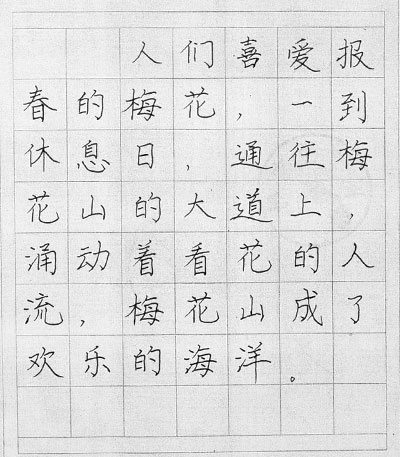 人们喜爱报
春的梅花，一到
休息日，通往梅
花山的大道上，
涌动着看花的人
流，梅花山成了
欢乐的海洋。